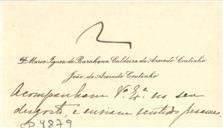 D. Maria Ignez de Barahona Caldeira de Azevedo Coutinho
João de Azevedo Coutinho
Acompanham V. Exª. no seu
desgosto, e enviam sentidos pesames
CP 4879